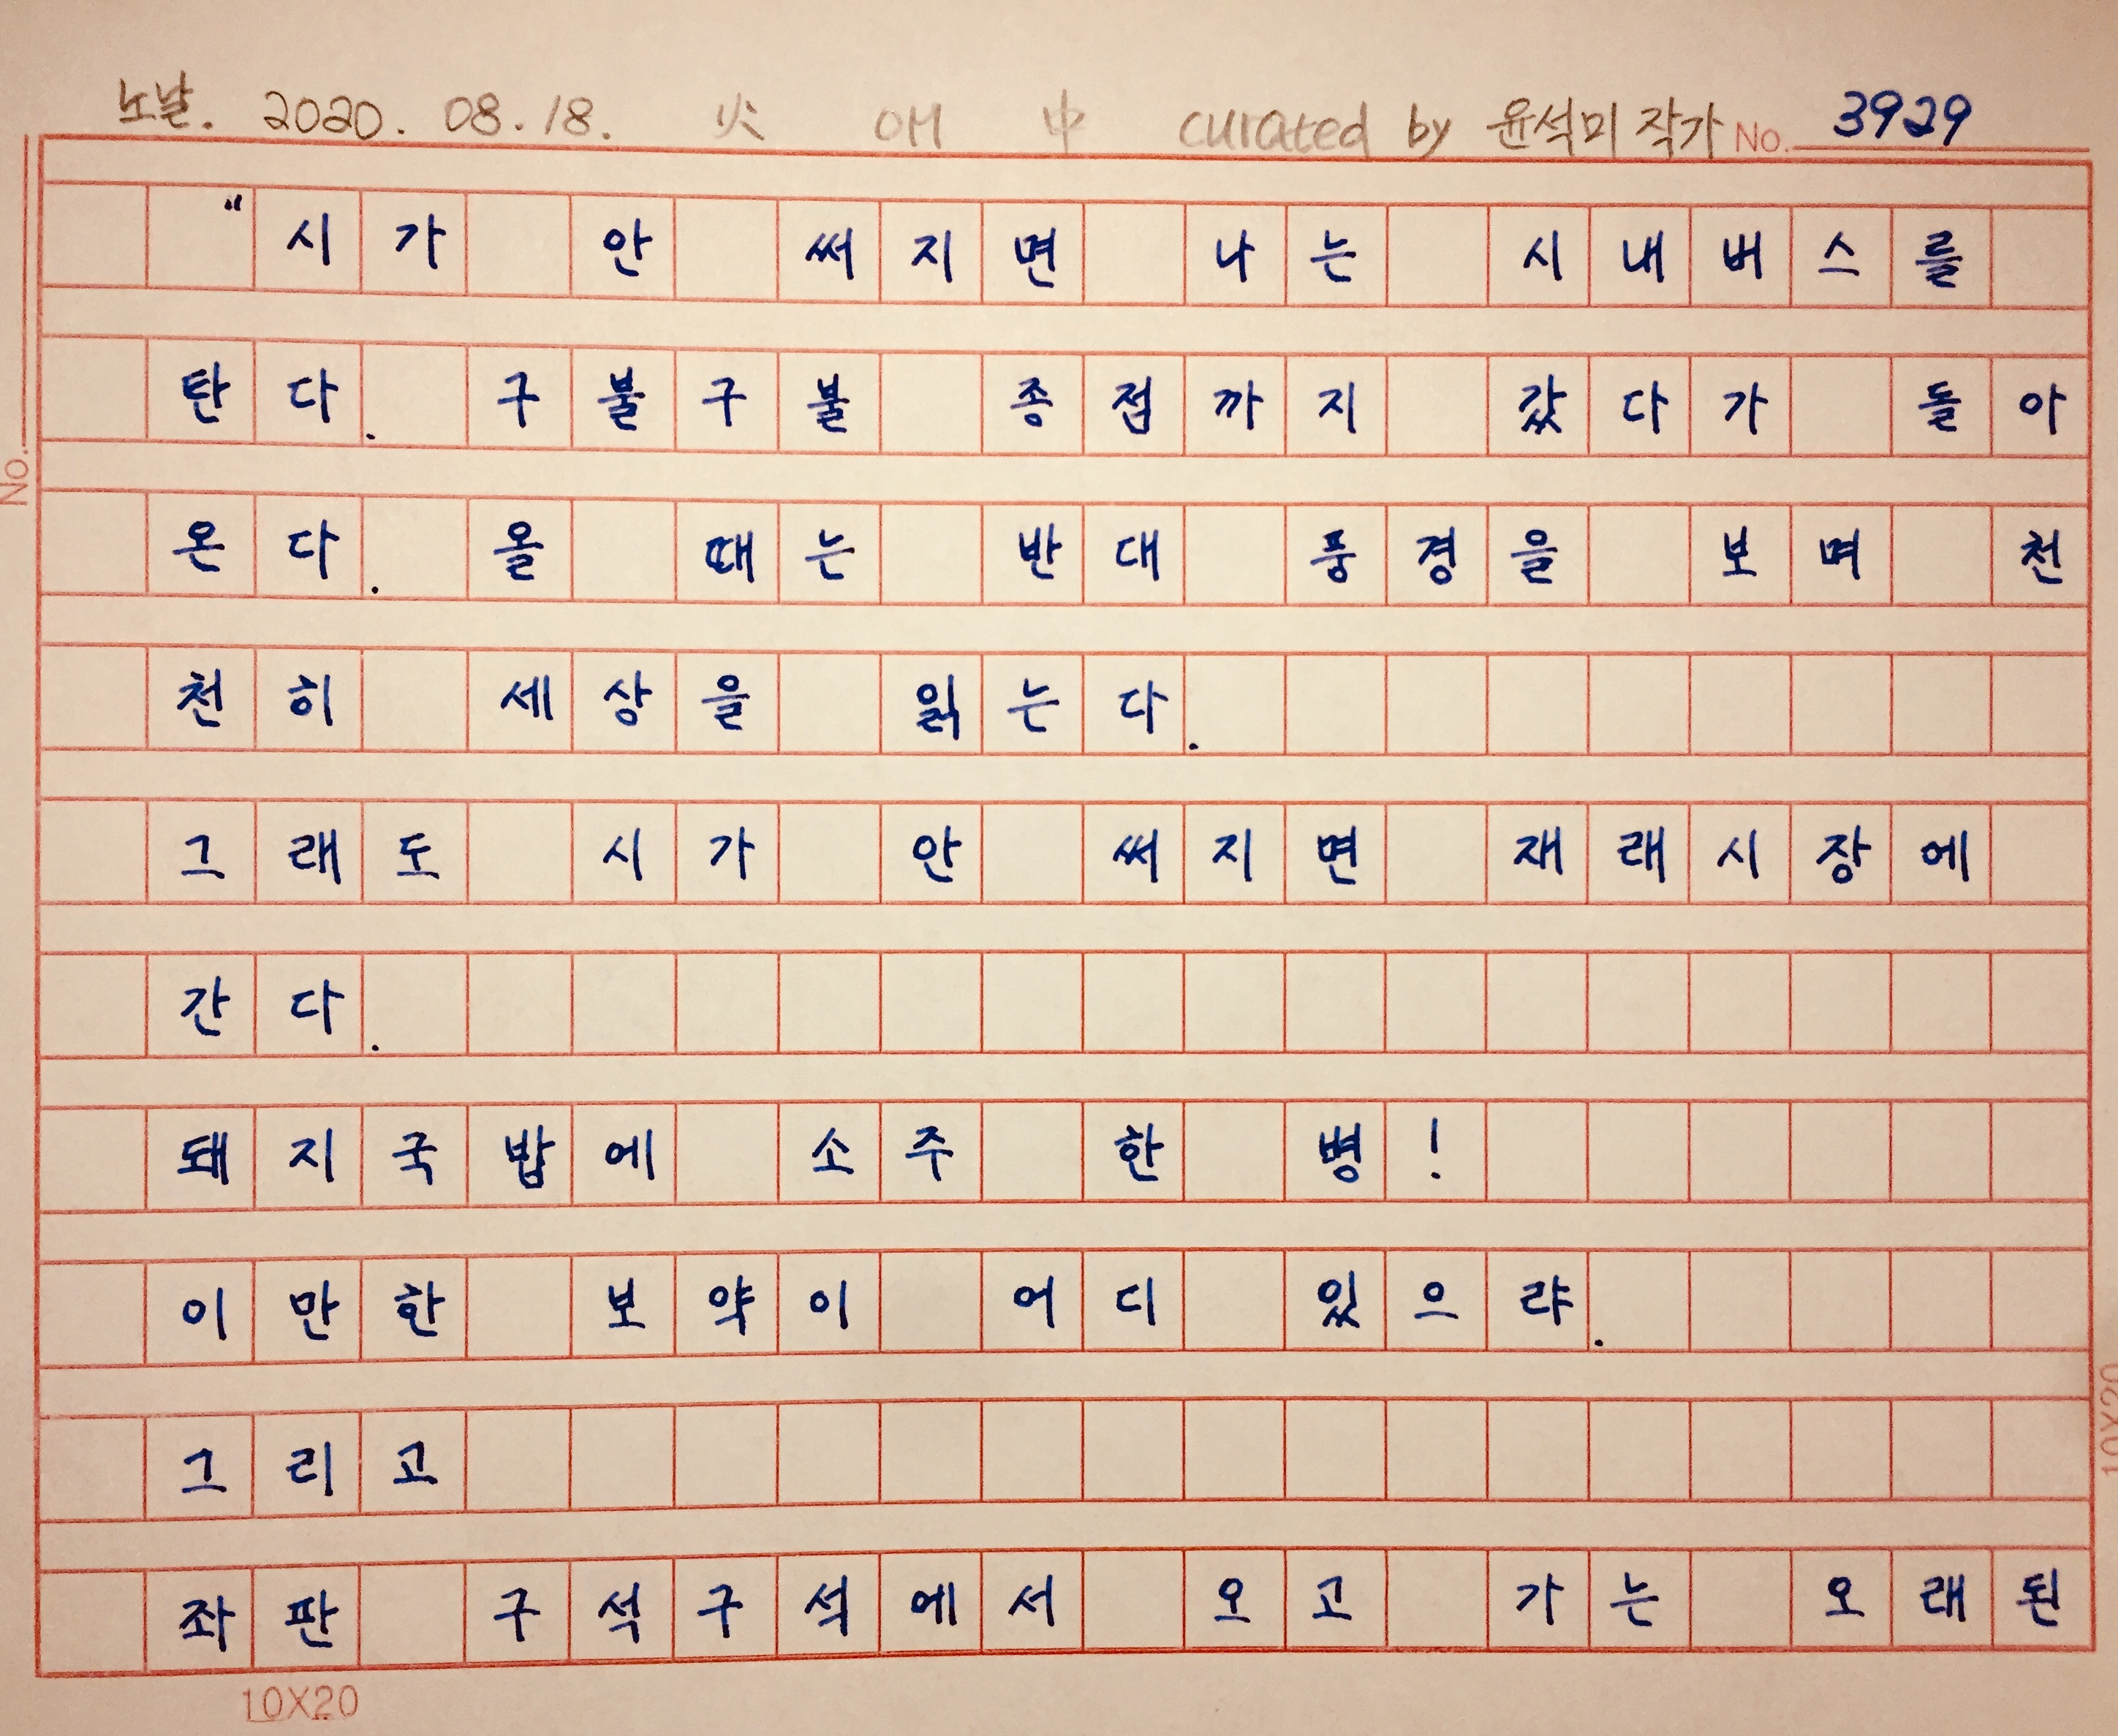 노날. 2020. 08. 18. 火 OH 中 curated by 윤석미 작가 No. 3929
“시가 안 써지면 나는 시내버스를
탄다. 구불구불 종점까지 갔다가 돌아
온다. 올 때는 반대 풍경을 보며 천
천히 세상을 읽는다.
그래도 시가 안 써지면 재래시장에
간다.
돼지국밥에 소주 한 병!
이만한 보약이 어디 있으랴.
그리고
좌판 구석구석에서 오고 가는 오래된
No.
10X20
10X20